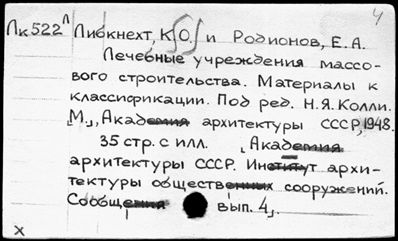 4
Лк522 Л Либкнехт, К[О.] и Родионов, Е.А.
Лечебные учреждения массо-
вого строительства. Материалы к
классификации. Под ред. Н.Я.Колли.
М., Академия архитектуры СССР, 1948.
35 стр. с илл. [Академия
архитектуры СССР. Институт архи-
тектуры общественных сооружений.
Сообщения вып. 4].
х